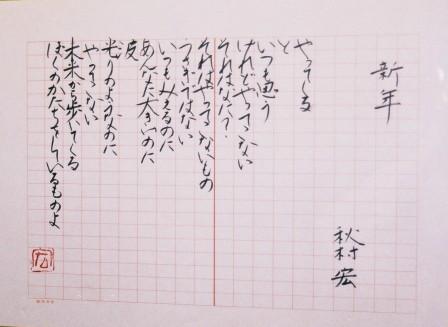 新年
秋村 宏
やってくる
と
いつも思う
けれどやってこない
それはなに?
それはやってこないもの
うさぎではない
いつもみえるのに
あんなに大きいのに
光りのようなのに
やってこない
未来から歩いてくる
ぼくのかたちをしているものよ
宏